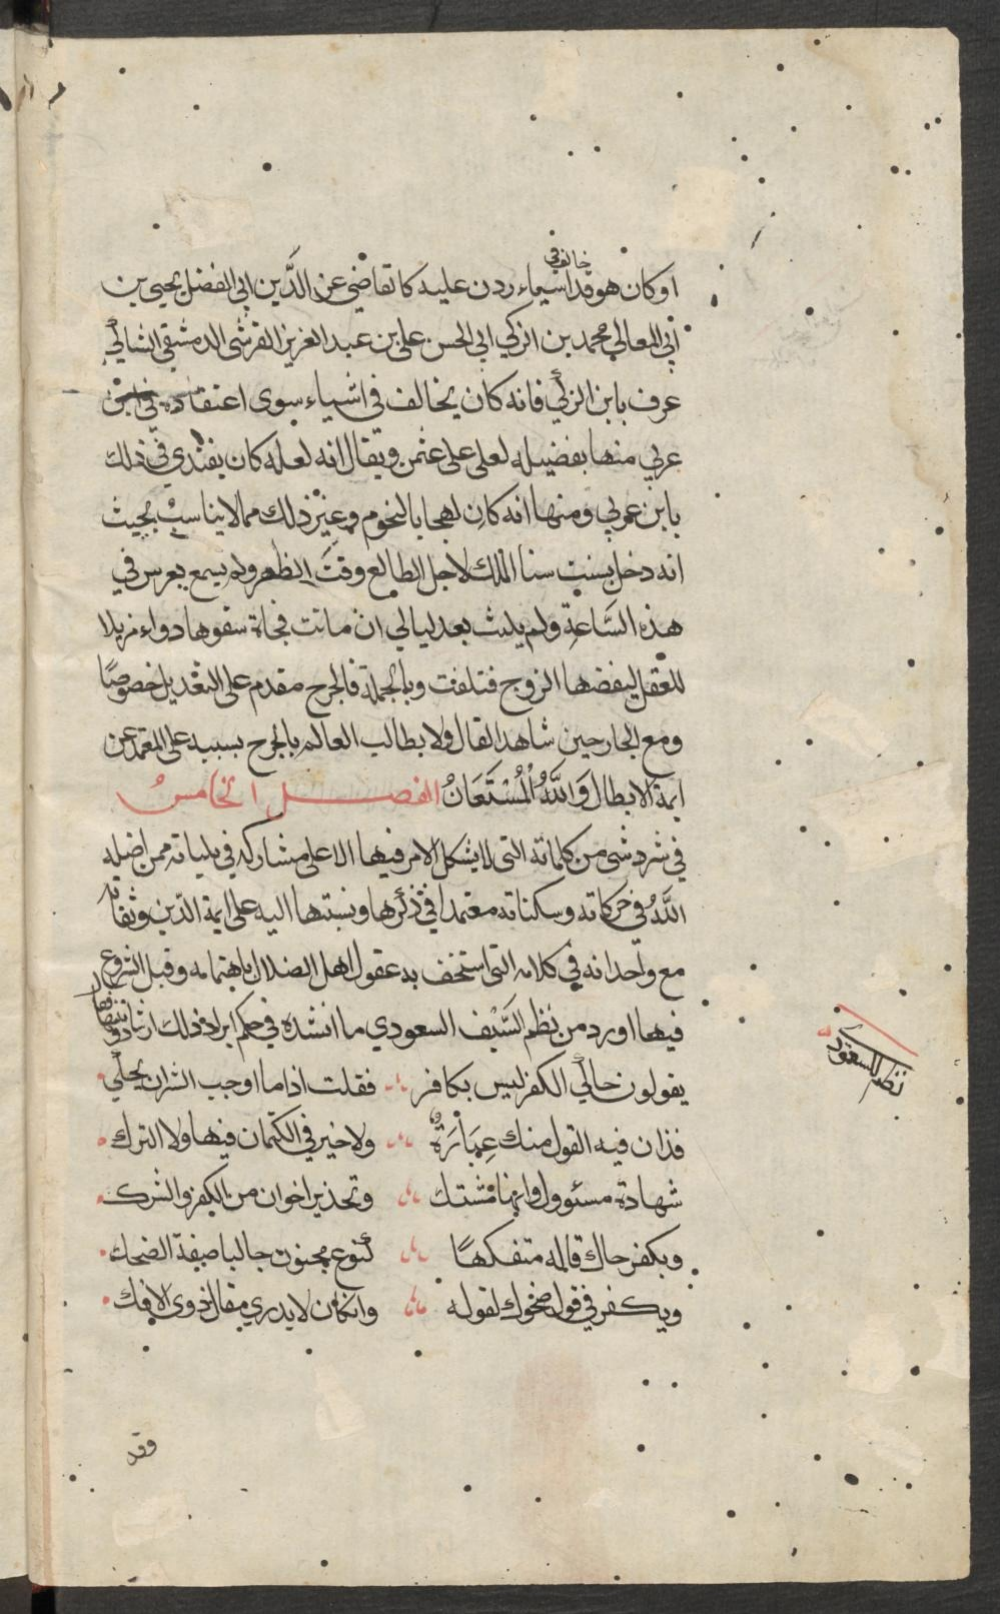 خالف في
او كان هو قد اسياء ردن عليه كا تقاضي عز الدَّين ابي الفضل يحيى بن
ابي المعالي محمد بن الزكي ابي الحسن علي بن عبد العزيز القرشي الدمشقي الشافي
عرف بابن الزكي فانه كان يخالف في اشياء سوى اعتقاده في ابن
عربي منها بفضيله لعلي على عثمن ويقال انه لعله كان يقتدي في ذلك
بابن عربي ومنها انه كان لهجا بالنجوم وغير ذلك مما لا يناسب بحيث
انه دخل بسنت سنا الملك لاجل الطالع وقت الظهر ولم يسمع بعرس في
هذه السَّاعة ولم يلبث بعد ليالي ان ماتت فجاة سقوها دواء مزيلا
للعقل ليفضها الزوج فتلفت وبالجملة فالجرح مقدم على التعديل خصوصًا
ومع الجارحين شاهد القال ولا يطالب العالم بالجرح بسببه على المعتمد عن
ايمة الابطال وَاللَّهُ الْمُسْتَعَانُ الفصل الخامس
في سرد شي من كلماته التي لا يشكل الامر فيها الا على مشاركه في بلياته ممن اضله
اللَّه في حركاته وسكناته معتمدا في ذكرها ونسبتها اليه على ايمة الدين وثقاته
مع واحدانه في كلامه التي استخف بد عقول اهل الضلال باهتمامه وقبل الشروع
فيها اورد من نظم السَّيف السعودي ما انشده في حكم ايراد ذلك
يقولون حاكي الكفر ليس بكافر فقلت اذا ما اوجب الشرع يحكي
فذان فيه القول منك عِبَارَةٌ ولا خير في الكتمان فيها ولا الترك
شهادة مسئوول وانها مشتك وتحذير اخوان من الكفر والشرك
وبكفر حاك قاله متفكهًا كنوع مجنون جالبا صيغة الضحك
ويكفر في قول ضحوك لقوله وان كان لا يدري مقال ذوي الافك
نظم للسعودي
فقد